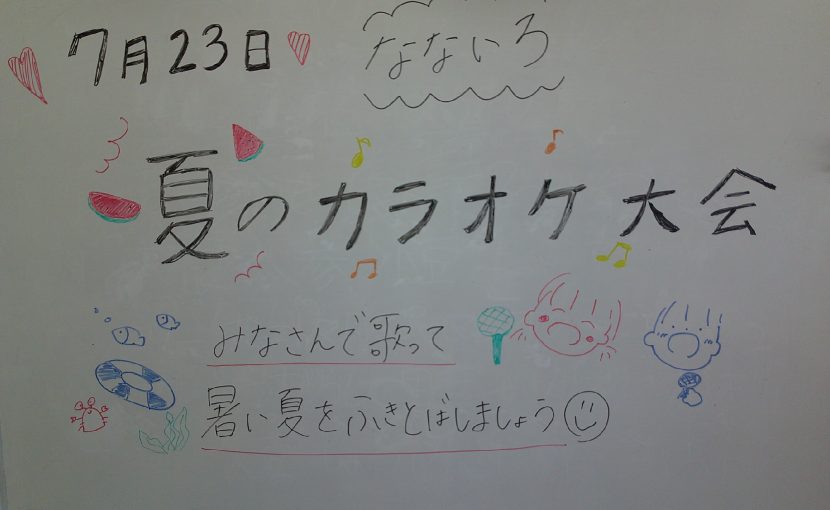 7月23日
なないろ
夏のカラオケ大会
みなさんで歌って
暑い夏をふきとばしましょう